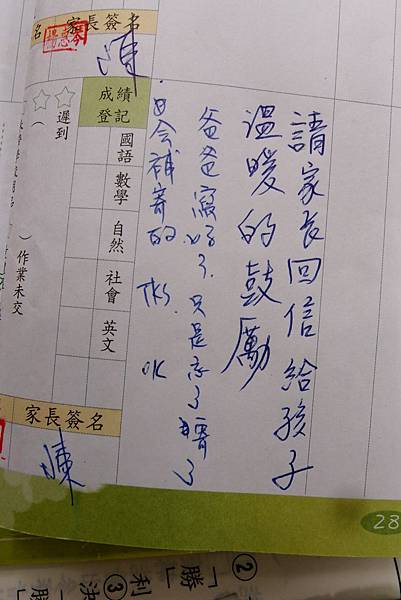 請家長回信給孩子
溫暖的鼓勵
爸爸寫好了.只是忘了寄了
会補寄的 TKS. OK
名
家長簽名
陳
成績登記
國語
數學
自然
社會
英文
遲到
( )作業未交
家長簽名
陳
28
②「勝」
利
③
決「勝